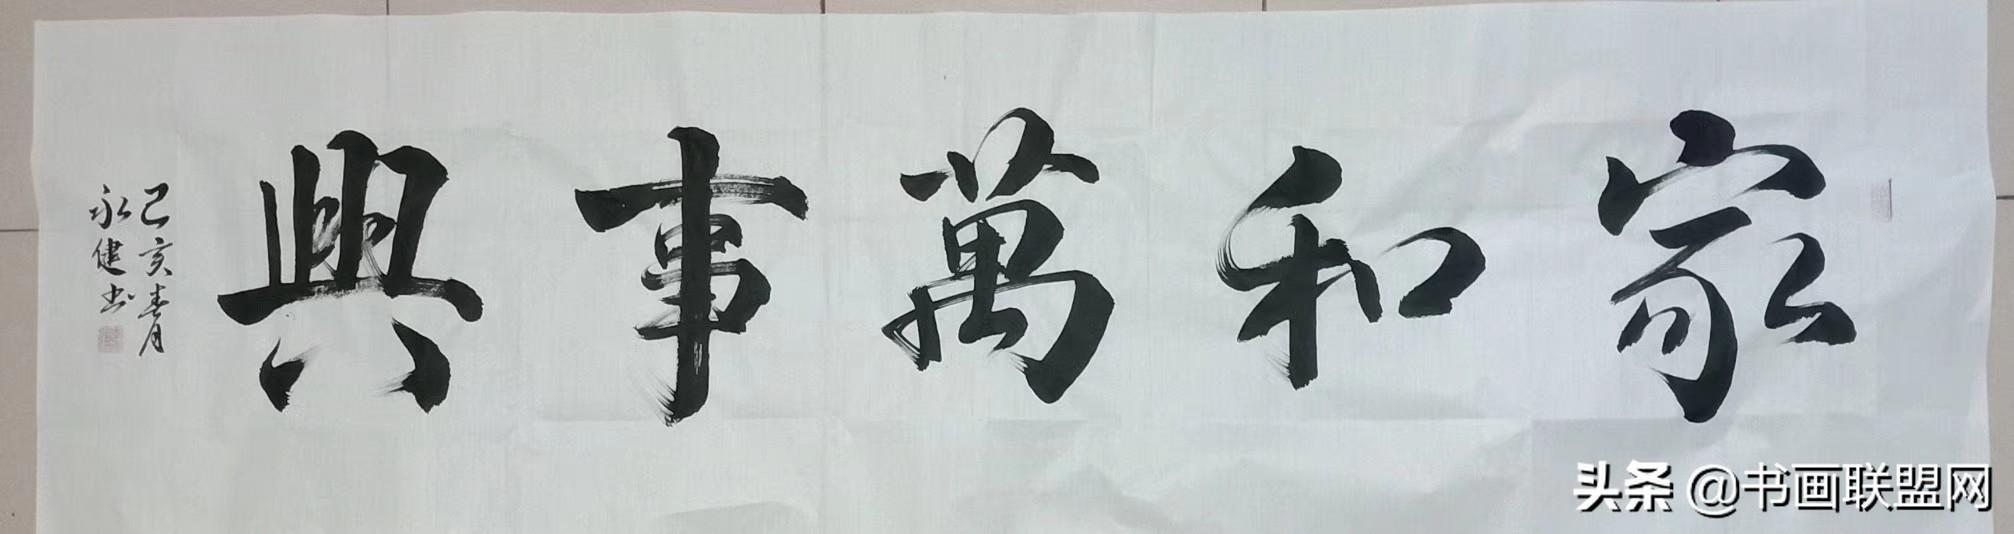 家和萬事興
己亥春月
永健书
头条 @书画联盟网